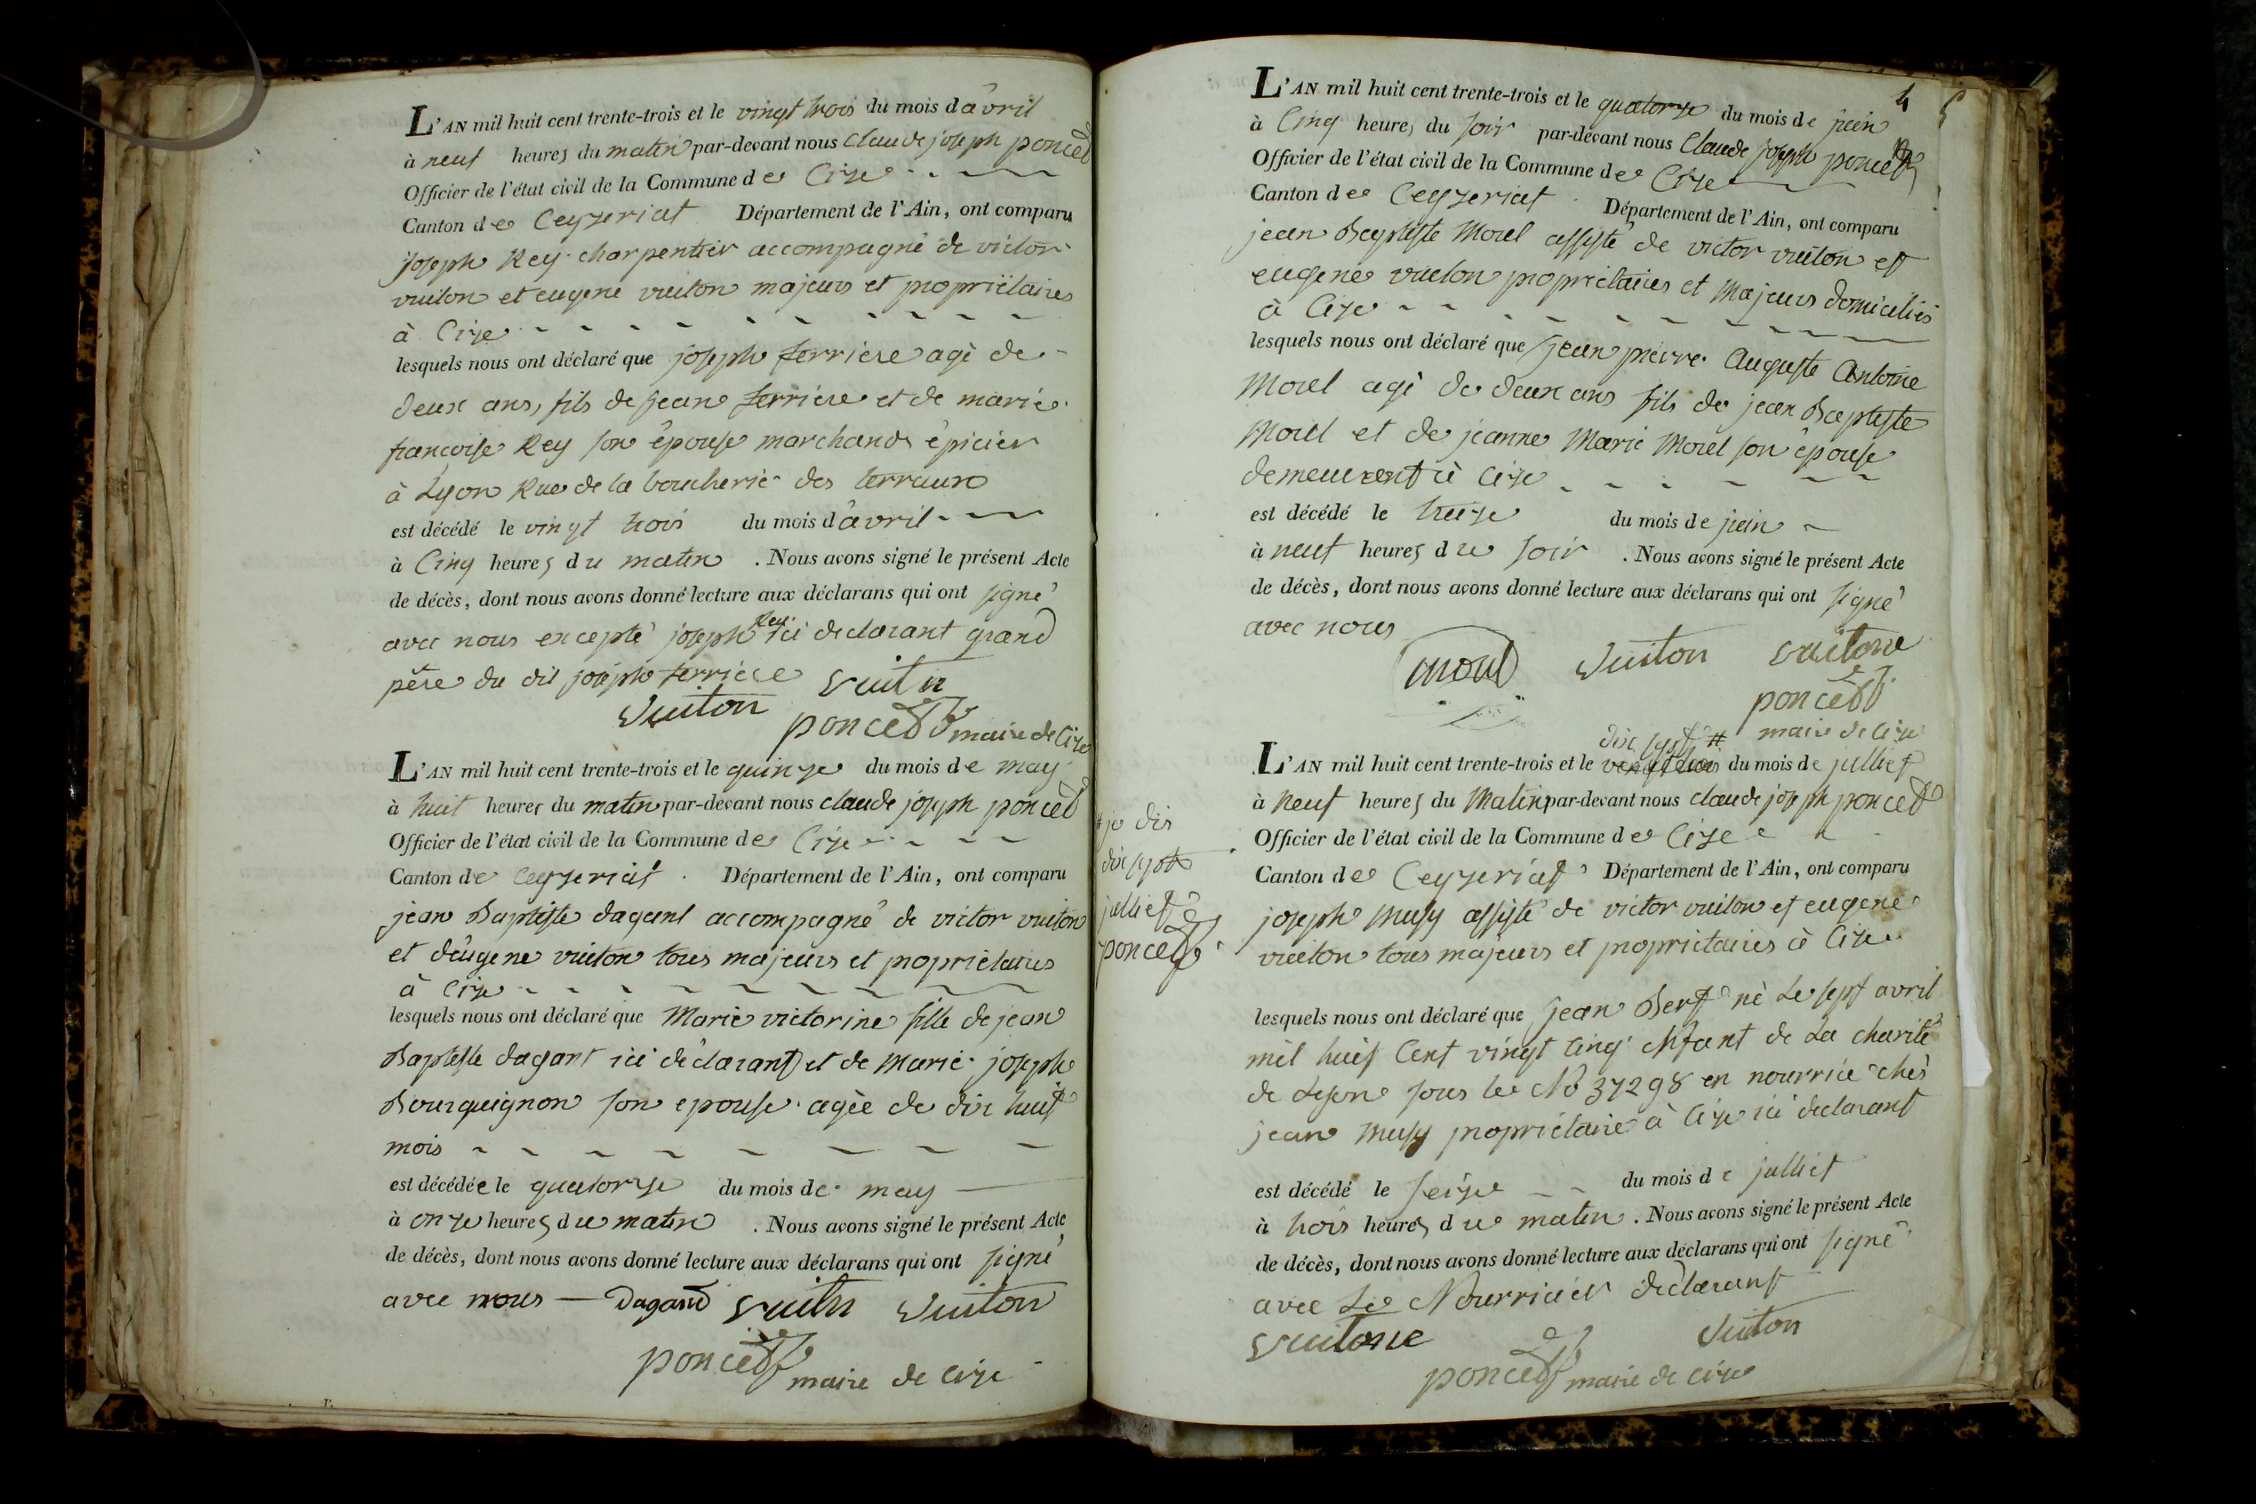 L'AN mil huit cent trente-trois et le vingt trois du mois d'avril
à neuf heures du matin par-devant nous Claude joseph poncet
Officier de l'état civil de la Commune de Cize
Canton de Ceyzeriat Département de l'Ain, ont comparu
joseph Rey charpentier accompagné de victor
vuiton et eugene vuiton majeurs et propriétaires
à Cize
lesquels nous ont déclaré que joseph ferriere agé de
deux ans, fils de jean ferriere et de marie
francoise Rey son épouse marchands épicier
à Lyon Rue de la boucherie des terraux
est décédé le vingt trois du mois d'avril
à Cinq heures du matin . Nous avons signé le présent Acte
de décès, dont nous avons donné lecture aux déclarans qui ont signé
avec nous excepté joseph Rey ici declarant grand
père du dit joseph ferriere
vuiton
vuiton
poncet maire de Cize
L'AN mil huit cent trente-trois et le quinze du mois de may
à huit heures du matin par-devant nous claude joseph poncet
Officier de l'état civil de la Commune de Cize
Canton de Ceyzeriat . Département de l'Ain, ont comparu
jean Baptiste dagant accompagné de victor vuiton
et d'eugene vuiton tous majeurs et propriétaires
à Cize
lesquels nous ont déclaré que Marie victorine fille de jean
Baptiste dagant ici déclarant et de Marie joseph
Bourguignon son epouse agée de dix huit
mois
est décédée le quatorze du mois de may
à onze heures du matin . Nous avons signé le présent Acte
de décès, dont nous avons donné lecture aux déclarans qui ont signé
avec nous — Dagand vuiton vuiton
poncet maire de Cize
4 5
L'AN mil huit cent trente-trois et le quatorze du mois de juin
à Cinq heures du soir par-devant nous Claude joseph poncet
Officier de l'état civil de la Commune de Cize
Canton de Ceyzeriat . Département de l'Ain, ont comparu
jean Baptiste Morel assisté de victor vuiton et
eugene vuiton propriétaires et Majeurs domiciliés
à Cize
lesquels nous ont déclaré que jean pierre Auguste Antoine
Morel agé de deux ans fils de jean Baptiste
Morel et de jeanne Marie Morel son épouse
demeurent à Cize
est décédé le treize du mois de juin
à neuf heures du soir . Nous avons signé le présent Acte
de décès, dont nous avons donné lecture aux déclarans qui ont signé
avec nous
morel vuiton vuitone
poncet
maire de Cize
dix sept #
L'AN mil huit cent trente-trois et le vingt trois du mois de julliet
à neuf heures du Matin par-devant nous claude joseph poncet
Officier de l'état civil de la Commune de Cize
Canton de Ceyzeriat Département de l'Ain, ont comparu
joseph Musy assisté de victor vuiton et eugene
vuiton tous majeurs et propriétaires à Cize
lesquels nous ont déclaré que jean Bert né Le sept avril
mil huit Cent vingt cinq enfant de La charité
de Lyon sous le No 37298 en nourrice chés
jean Musy propriétaire à Cize ici declarant
est décédé le seize du mois de julliet
à trois heures du matin . Nous avons signé le présent Acte
de décès, dont nous avons donné lecture aux déclarans qui ont signé
avec Le Nourricier déclarant
vuitone vuiton
poncet maire de Cize
# je dis
dix sept
julliet
poncet